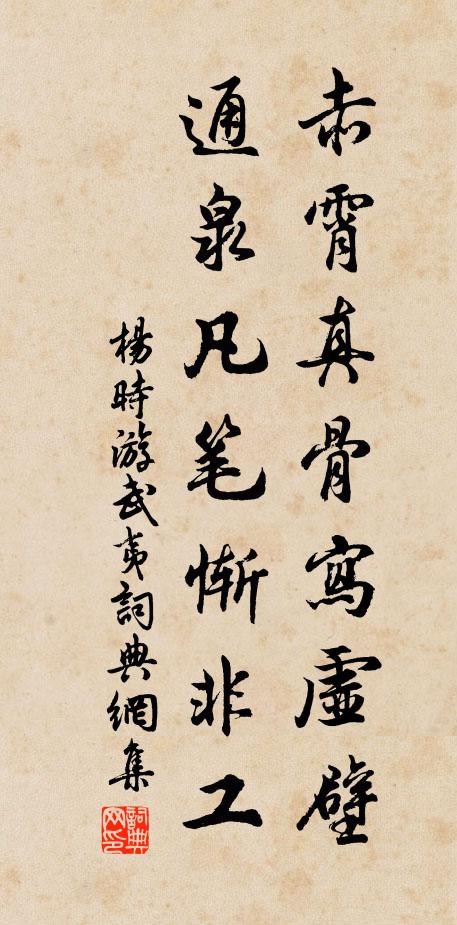 赤霄真骨寫虛壁
通泉凡笔惭非工
楊時游武夷詞典網集
詞典网印